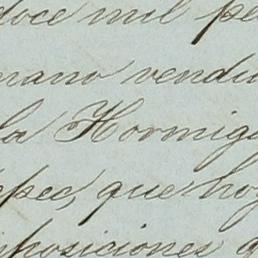 doce mil pe
mano vendi
la Hormiga
epec, que hoy
posiciones q